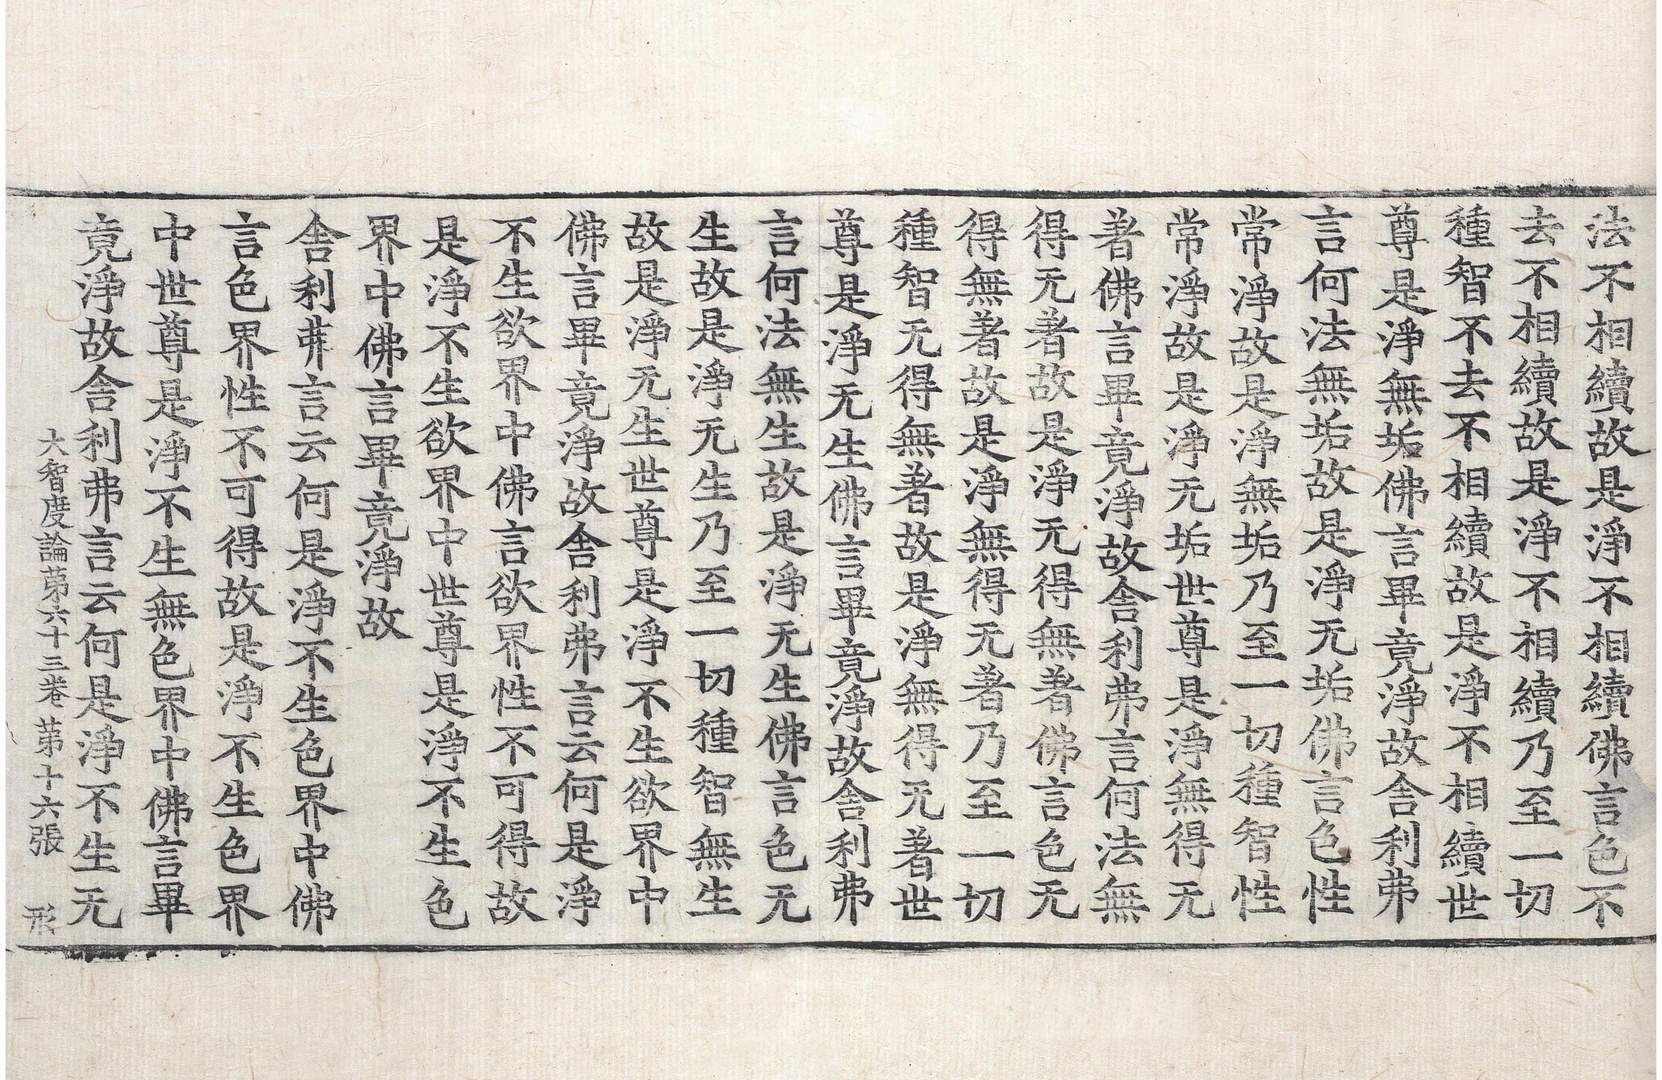 法不相續故是淨不相續佛言色不
去不相續故是淨不相續乃至一切
種智不去不相續故是淨不相續世
尊是淨無垢佛言畢竟淨故舍利弗
言何法無垢故是淨无垢佛言色性
常淨故是淨無垢乃至一切種智性
常淨故是淨无垢世尊是淨無得无
著佛言畢竟淨故舍利弗言何法無
得无著故是淨无得無著佛言色无
得無著故是淨無得无著乃至一切
種智无得無著故是淨無得无著世
尊是淨无生佛言畢竟淨故舍利弗
言何法無生故是淨无生佛言色无
生故是淨无生乃至一切種智無生
故是淨无生世尊是淨不生欲界中
佛言畢竟淨故舍利弗言云何是淨
不生欲界中佛言欲界性不可得故
是淨不生欲界中世尊是淨不生色
界中佛言畢竟淨故
舍利弗言云何是淨不生色界中佛
言色界性不可得故是淨不生色界
中世尊是淨不生無色界中佛言畢
竟淨故舍利弗言云何是淨不生无
大智度論苐六十三卷 苐十六張 形